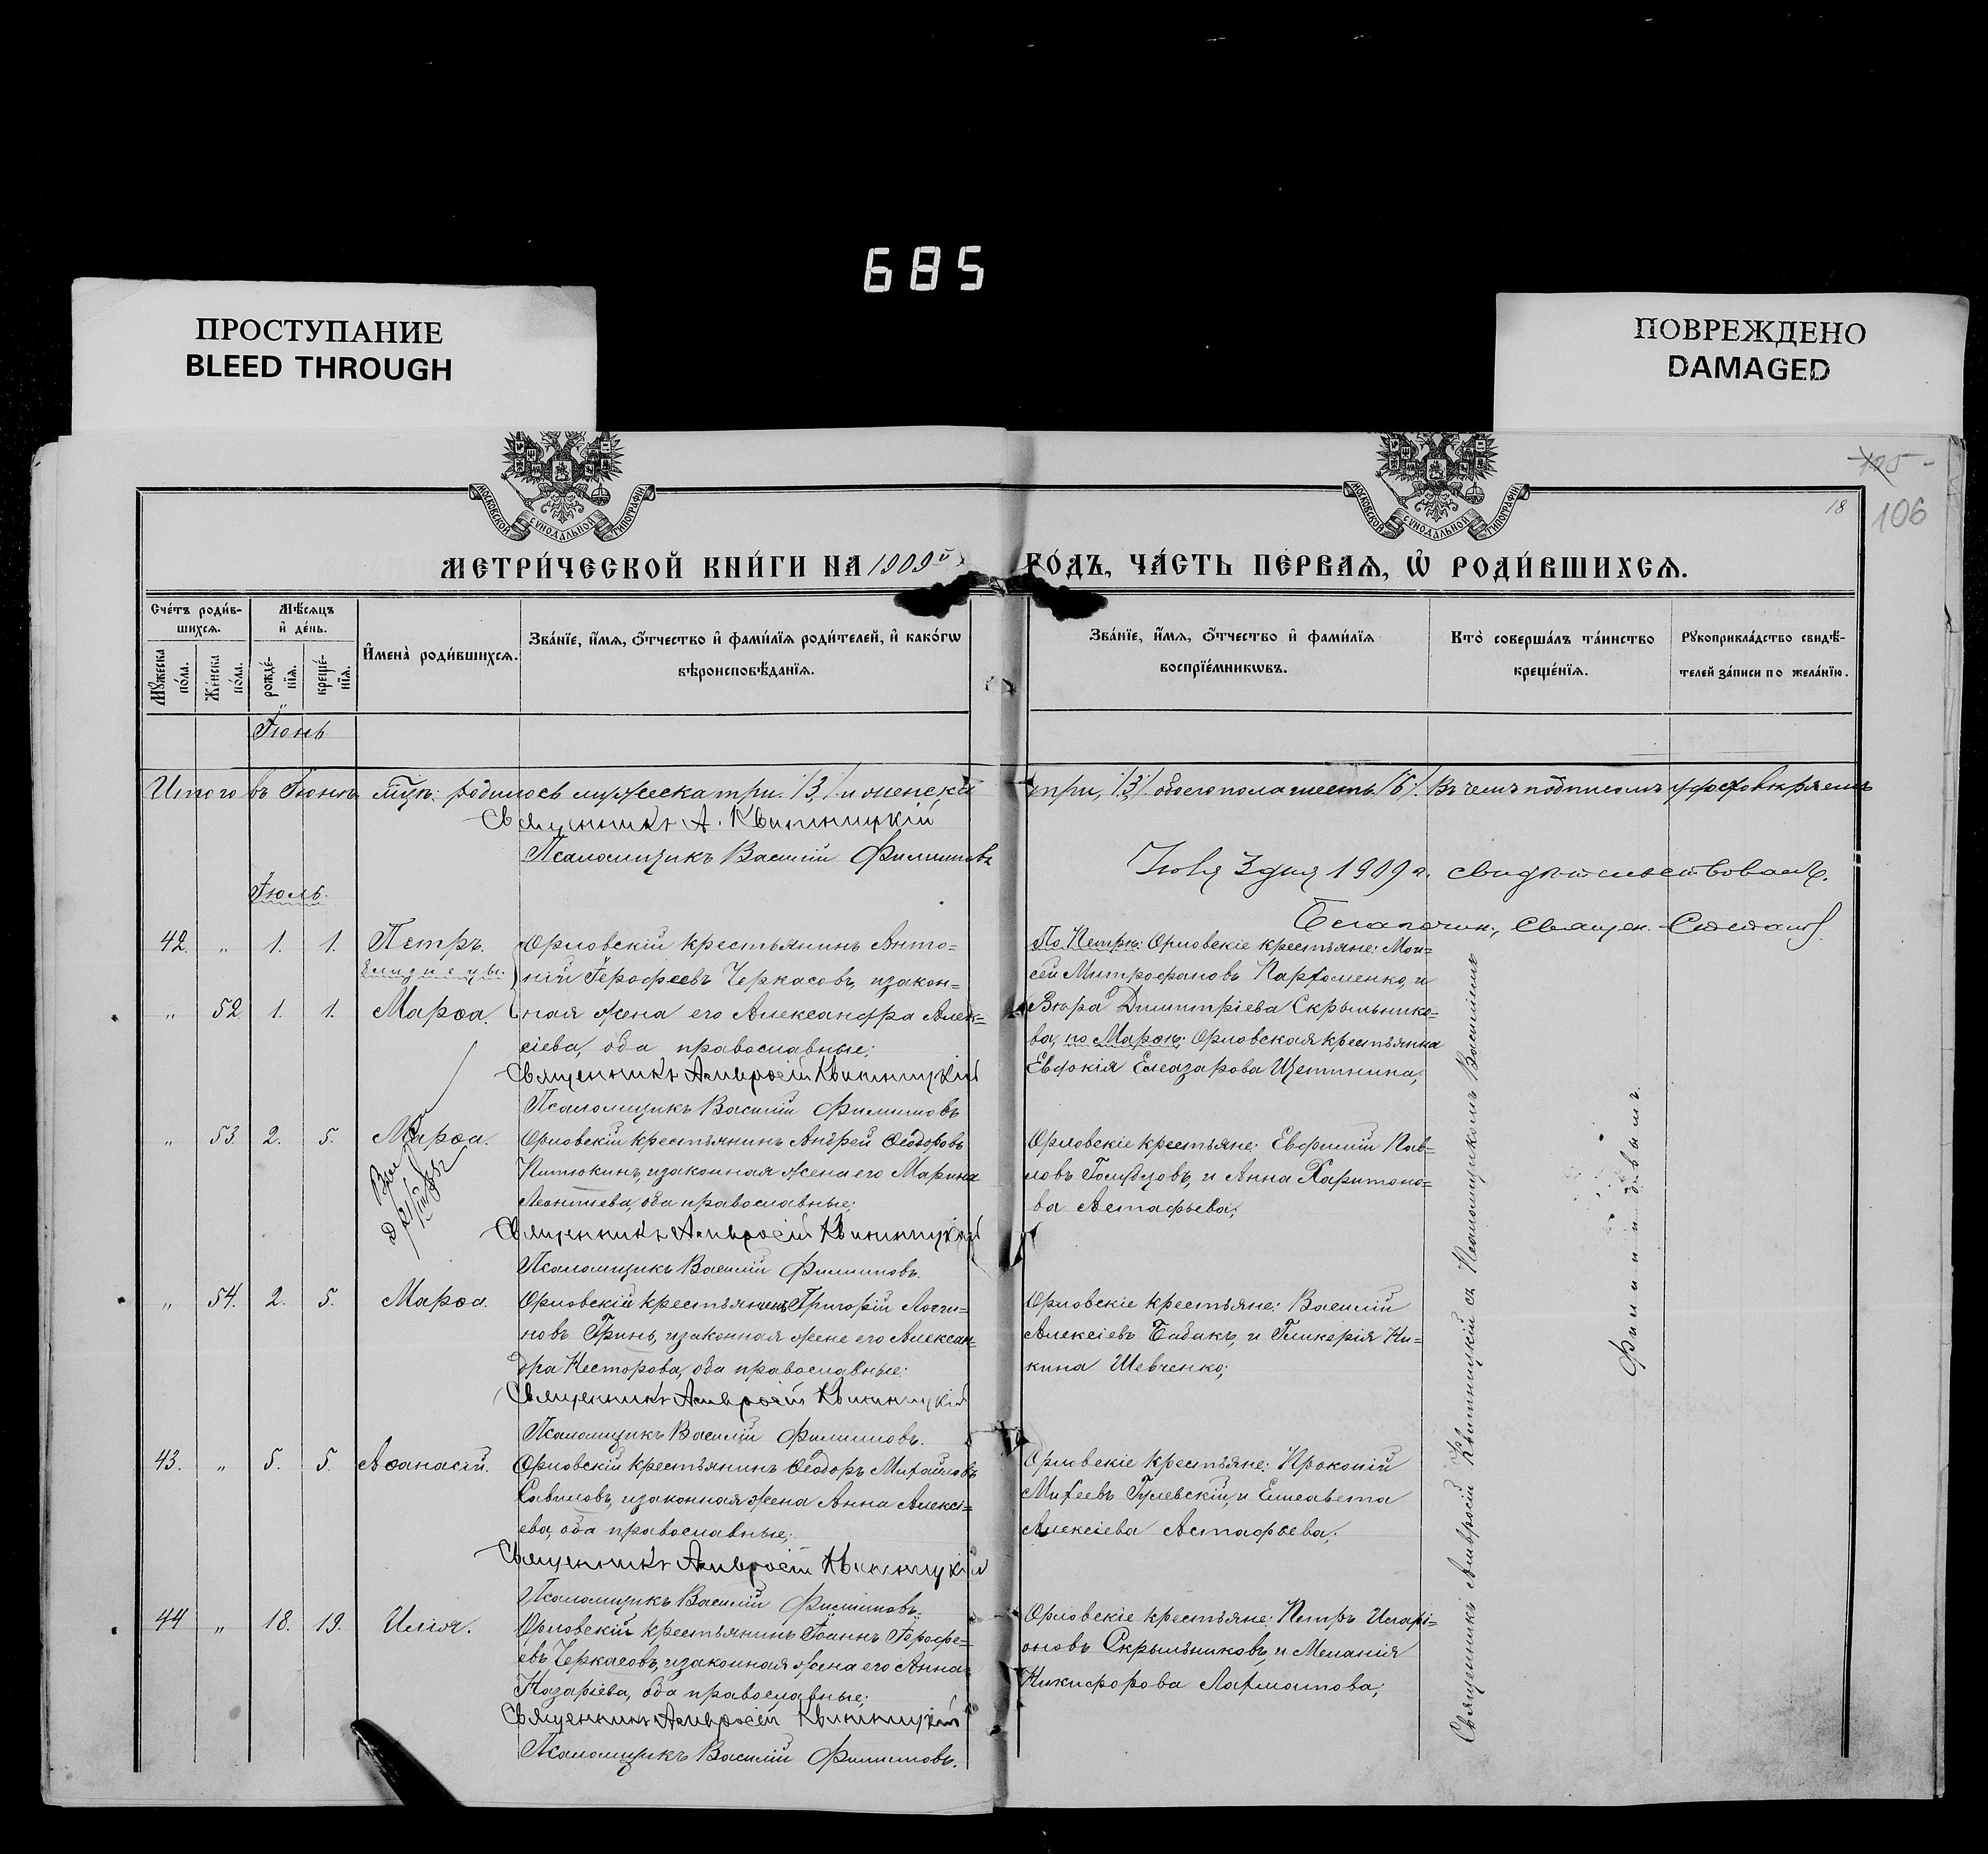 685
ПРОСТУПАНИЕ
BLEED THROUGH
ПОВРЕЖДЕНО
DAMAGED
105
106
18
МОСКОВСКОЙ СѴНОДАЛЬНОЙ ТИПОГРАФІИ
МОСКОВСКОЙ СѴНОДАЛЬНОЙ ТИПОГРАФІИ
МЕТРИ́ЧЕСКОЙ КНИ́ГИ НА 1909й ГО́ДЪ, ЧА́СТЬ ПЕ́РВАѦ, Ѡ҆ РОДИ́ВШИХСѦ.
Сче́тъ роди́в-
шихсѧ.
Мѣ́сѧцъ
и҆ де́нь.
Мꙋ́жеска
по́ла.
Же́нска
по́ла.
рожде́-
нїѧ.
креще́-
нїѧ.
И҆мена̀ роди́вшихсѧ.
Зва́нїе, и҆́мѧ, ѻ҆́тчество и҆ фамі́лїѧ роди́телей, и҆ како́гѡ
вѣроисповѣ́данїѧ.
Зва́нїе, и҆́мѧ, ѻ҆́тчество и҆ фамі́лїѧ
воспрїе́мникѡвъ.
Кто̀ соверша́лъ та́инство
креще́нїѧ.
Рꙋкоприкла́дство свидѣ́-
телей за́писи по жела́нїю.
Іюнь
Итого въ Іюнѣ мцѣ: родилось мужеска три /3/ и женска три, /3/ обоего пола шесть /6/. Въ чемъ подписомъ удостовѣряемъ
Священникъ А. Квитницкій
Псаломщикъ Василій Филиповъ
Іюля 3 дня 1909 г. свидѣтельствовалъ.
Благочин., Священ.
Іюль.
42. „ 1. 1. Петръ.
близнецы.
„ 52. 1. 1. Марѳа.
Орловскій крестьянинъ Анто=
ній Іерофеевъ Черкасовъ, и закон=
ная жена его Александра Алек=
сіева, оба православные;
Священникъ Амвросій Квитницкій
Псаломщикъ Василій Филиповъ
По Петрѣ: Орловскіе крестьяне: Мои=
сей Митрофановъ Пархоменко, и
Димитріева Скрыльнико=
ва, по Марѳѣ: Орловская крестьянка
Евдокія Елеазарова Щетинина;
„ 53. 2. 5. Марѳа.
Орловскій крестьянинъ Андрей Ѳеодоровъ
Китюкинъ, и законная жена его Марина
Леонтіева, оба православные;
Священникъ Амвросій Квитницкій
Псаломщикъ Василій Филиповъ.
Орловскіе крестьяне: Евфимій Пав=
ловъ Голубцовъ, и Анна Харитоно=
ва Астафьева;
„ 54. 2. 5. Марѳа.
Орловскій крестьянинъ Григорій Логги=
новъ Гринь, и законная жена его Алексан=
дра Несторова, оба православные;
Священникъ Амвросій Квитницкій
Псаломщикъ Василій Филиповъ.
Орловскіе крестьяне: Василій
Алексіевъ Бабакъ, и Гликерія Ни=
кина Шевченко;
43. „ 5. 5. Аѳанасій.
Орловскій крестьянинъ Ѳеодоръ Михайловъ
Савиловъ, и законная жена Анна Алексі=
ева, оба православные;
Священникъ Амвросій Квитницкій
Псаломщикъ Василій Филиповъ.
Орловскіе крестьяне: Прокопій
Михеевъ Гулевскій, и Елисавета
Алексіева Астафьева;
44 „ 18. 19. Илія.
Орловскій крестьянинъ Іоаннъ Іерофе=
евъ Черкасовъ, и законная жена его Анна
Назаріева, оба православные;
Священникъ Амвросій Квитницкій
Псаломщикъ Василій Филиповъ.
Орловскіе крестьяне: Петръ Иларі=
оновъ Скрыльниковъ, и Меланія
Никифорова Лахматова;
Священникъ Амвросій Квитницкій съ Псаломщикомъ Василіемъ
Филиповымъ.